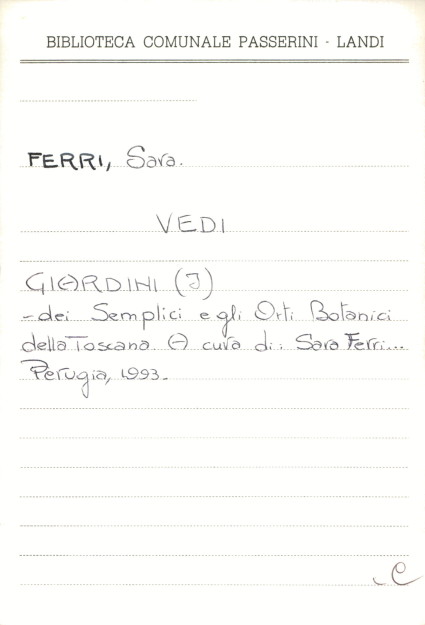 BIBLIOTECA COMUNALE PASSERINI - LANDI
FERRI, Sara.
VEDI
GIARDINI (I)
- dei Semplici e gli Orti Botanici
della Toscana. A cura di: Sara Ferri...
Perugia, 1993.
C